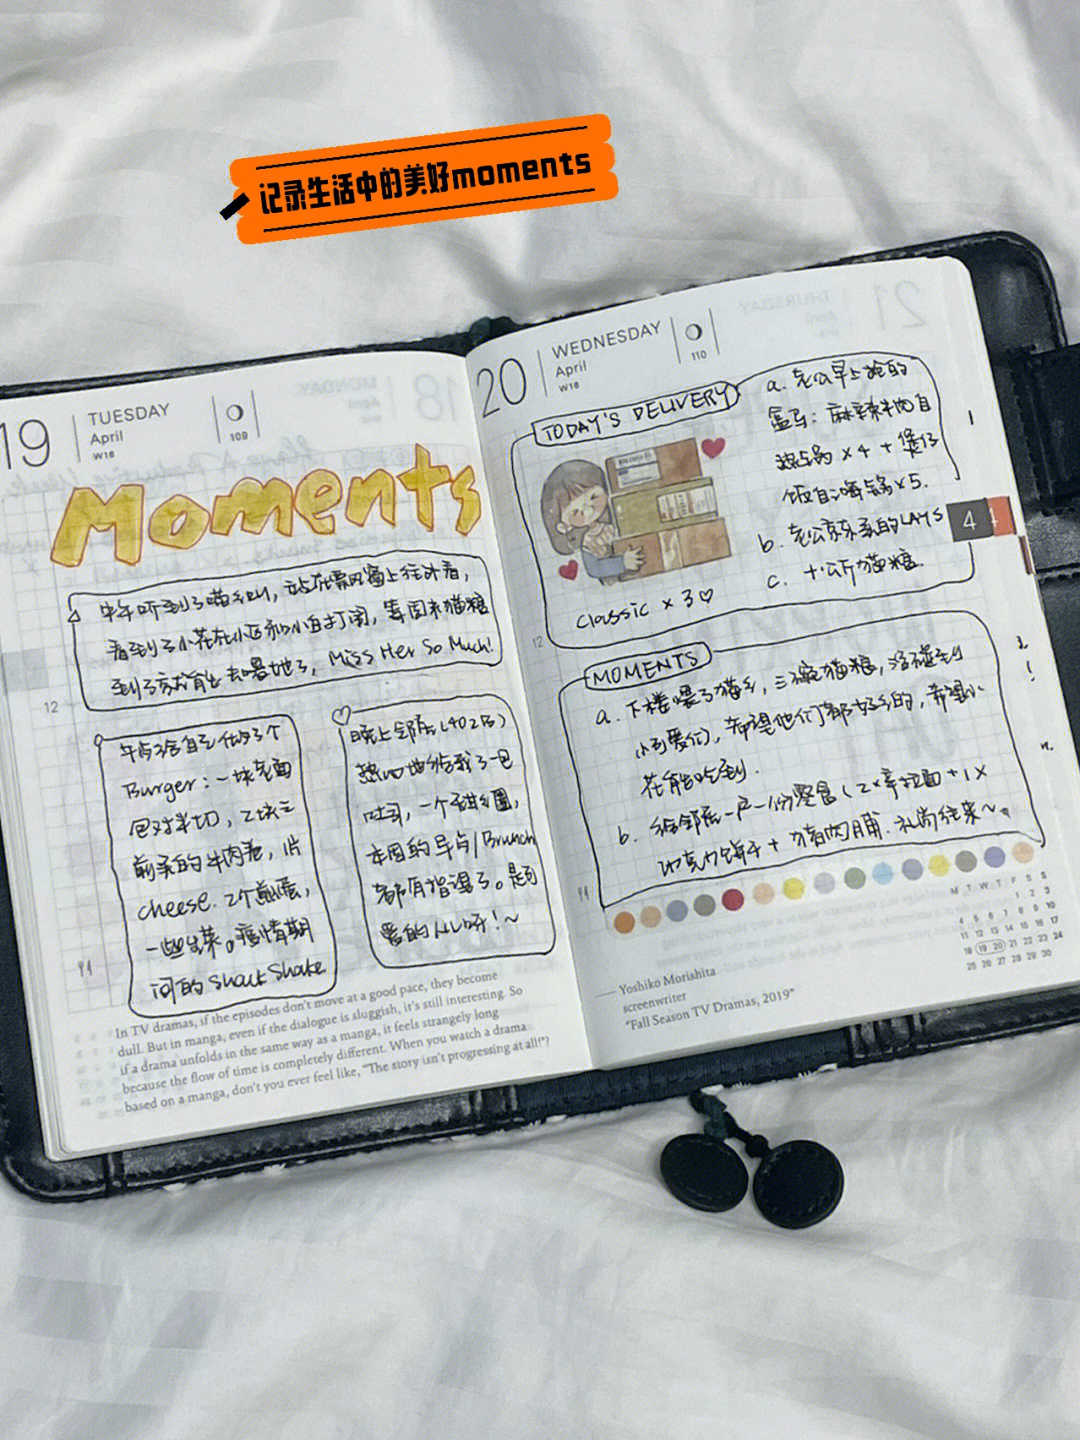 记录生活中的美好moments
19
TUESDAY
April
W16
109
Moments
中午听到了喵叫，站在飘窗上往外看，
看到了小花在小区和小白打闹，等周末猫粮
到了方才能去喂她了，Miss Her So Much!
12
午后给自己做了个
Burger：一块
包对半切，2块三
煎煮的牛肉卷，1片
cheese. 2个煎蛋，
一些生菜。疫情期
间的Shack Shake
晚上邻居(402房)
热心地给我了一包
吐司，一个甜甜圈，
本周的早点/Brunch
都有着落了。是可
爱的人儿呀！~
In TV dramas, if the episodes don't move at a good pace, they become
dull. But in manga, even if the dialogue is sluggish, it's still interesting. So
if a drama unfolds in the same way as a manga, it feels strangely long
because the flow of time is completely different. When you watch a drama
based on a manga, don't you ever feel like, "The story isn't progressing at all!"?
20
WEDNESDAY
April
W16
110
TODAY'S DELIVERY
a. 老公早上抢的
盒马：麻辣牛肉自
热锅 x 4 + 煲仔
饭自嗨锅 x 5.
b. 老公京东买的LAYS
c. 十公斤猫粮.
classic x 3
4
12
MOMENTS
a. 下楼喂了猫咪，三碗猫粮，没碰到
小可爱们，希望他们都好好的，希望小
花能吃到.
b. 给邻居一户一份零食（2x辛拉面 + 1x
巧克力饼干 + 猪肉脯. 礼尚往来~
M T W T F S S
1 2 3
4 5 6 7 8 9 10
11 12 13 14 15 16 17
18 19 20 21 22 23 24
25 26 27 28 29 30
Yoshiko Morishita
screenwriter
"Fall Season TV Dramas, 2019"